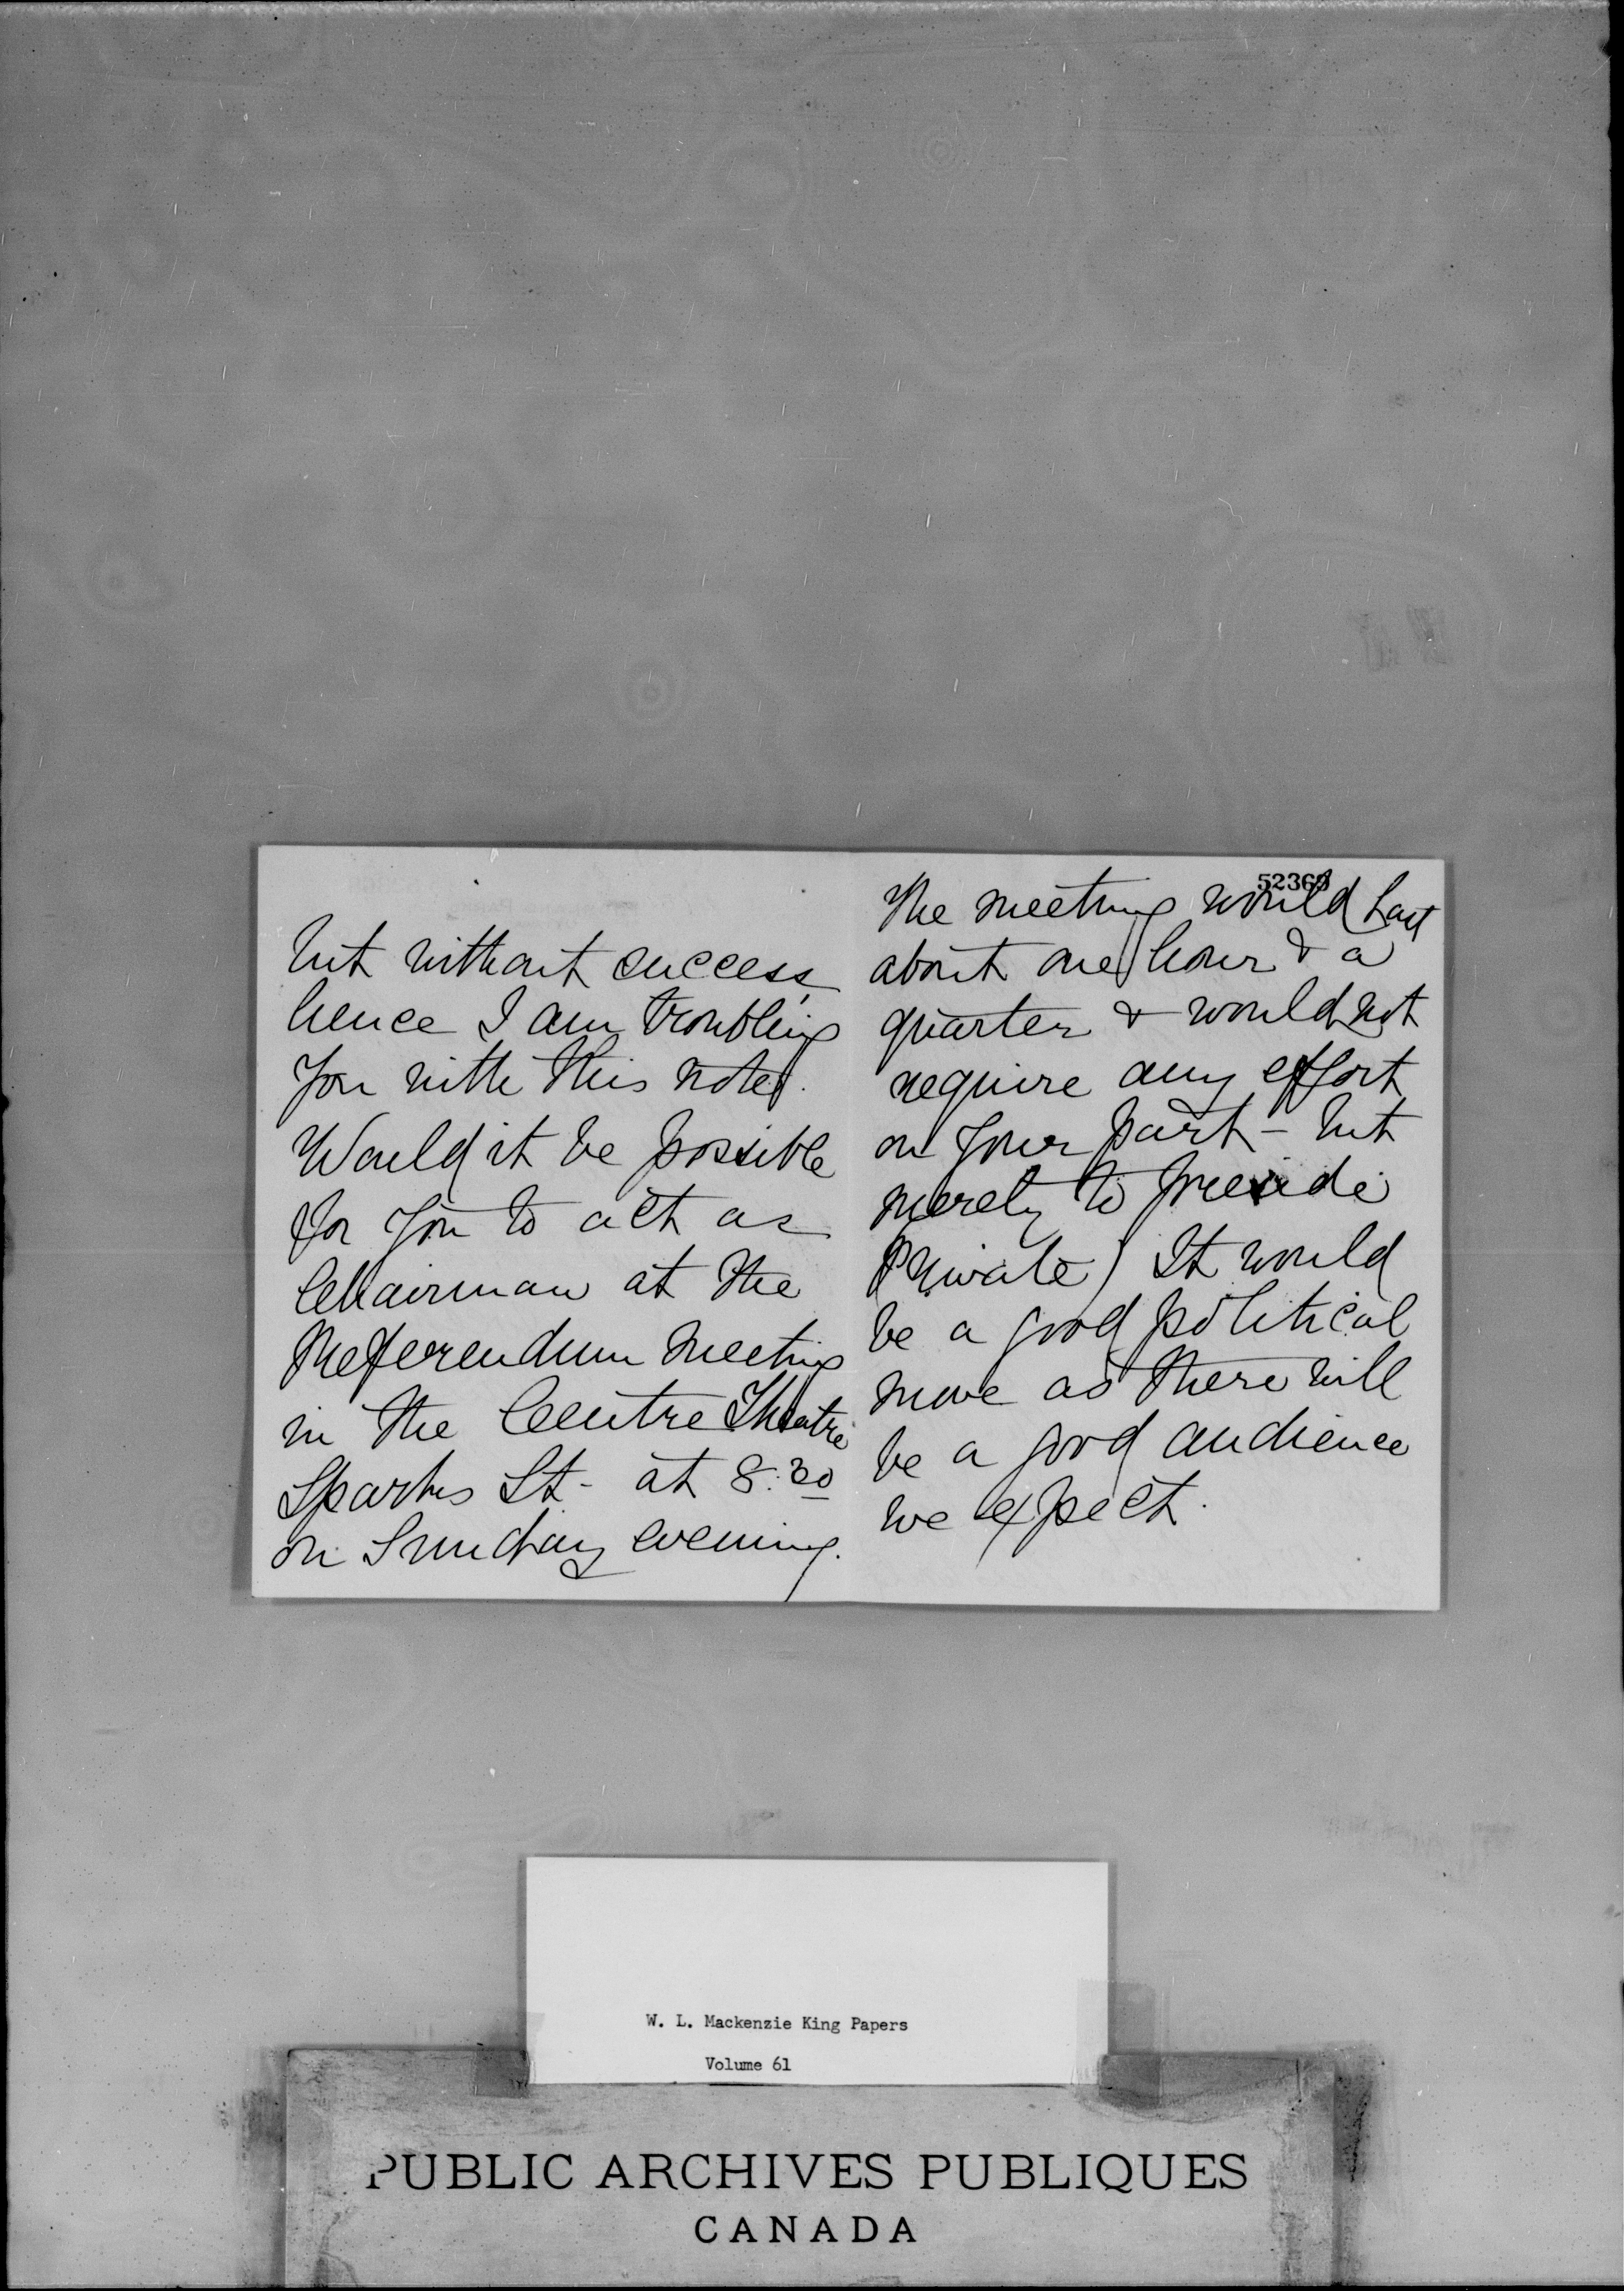 but without success,
hence I am troubling
you with this note.
Would it be possible
for you to act as
Chairman at the
Referendum Meeting
in the Centre Theatre
Sparks St. at 8.30
on Sunday evening.
52369
The meeting would last
about one hour & a
quarter & would not
require any effort
on your part - but
merely to preside
(Private) It would
be a good political
move as there will
be a good audience
we expect.
W. L. Mackenzie King Papers
Volume 61
PUBLIC ARCHIVES PUBLIQUES
CANADA